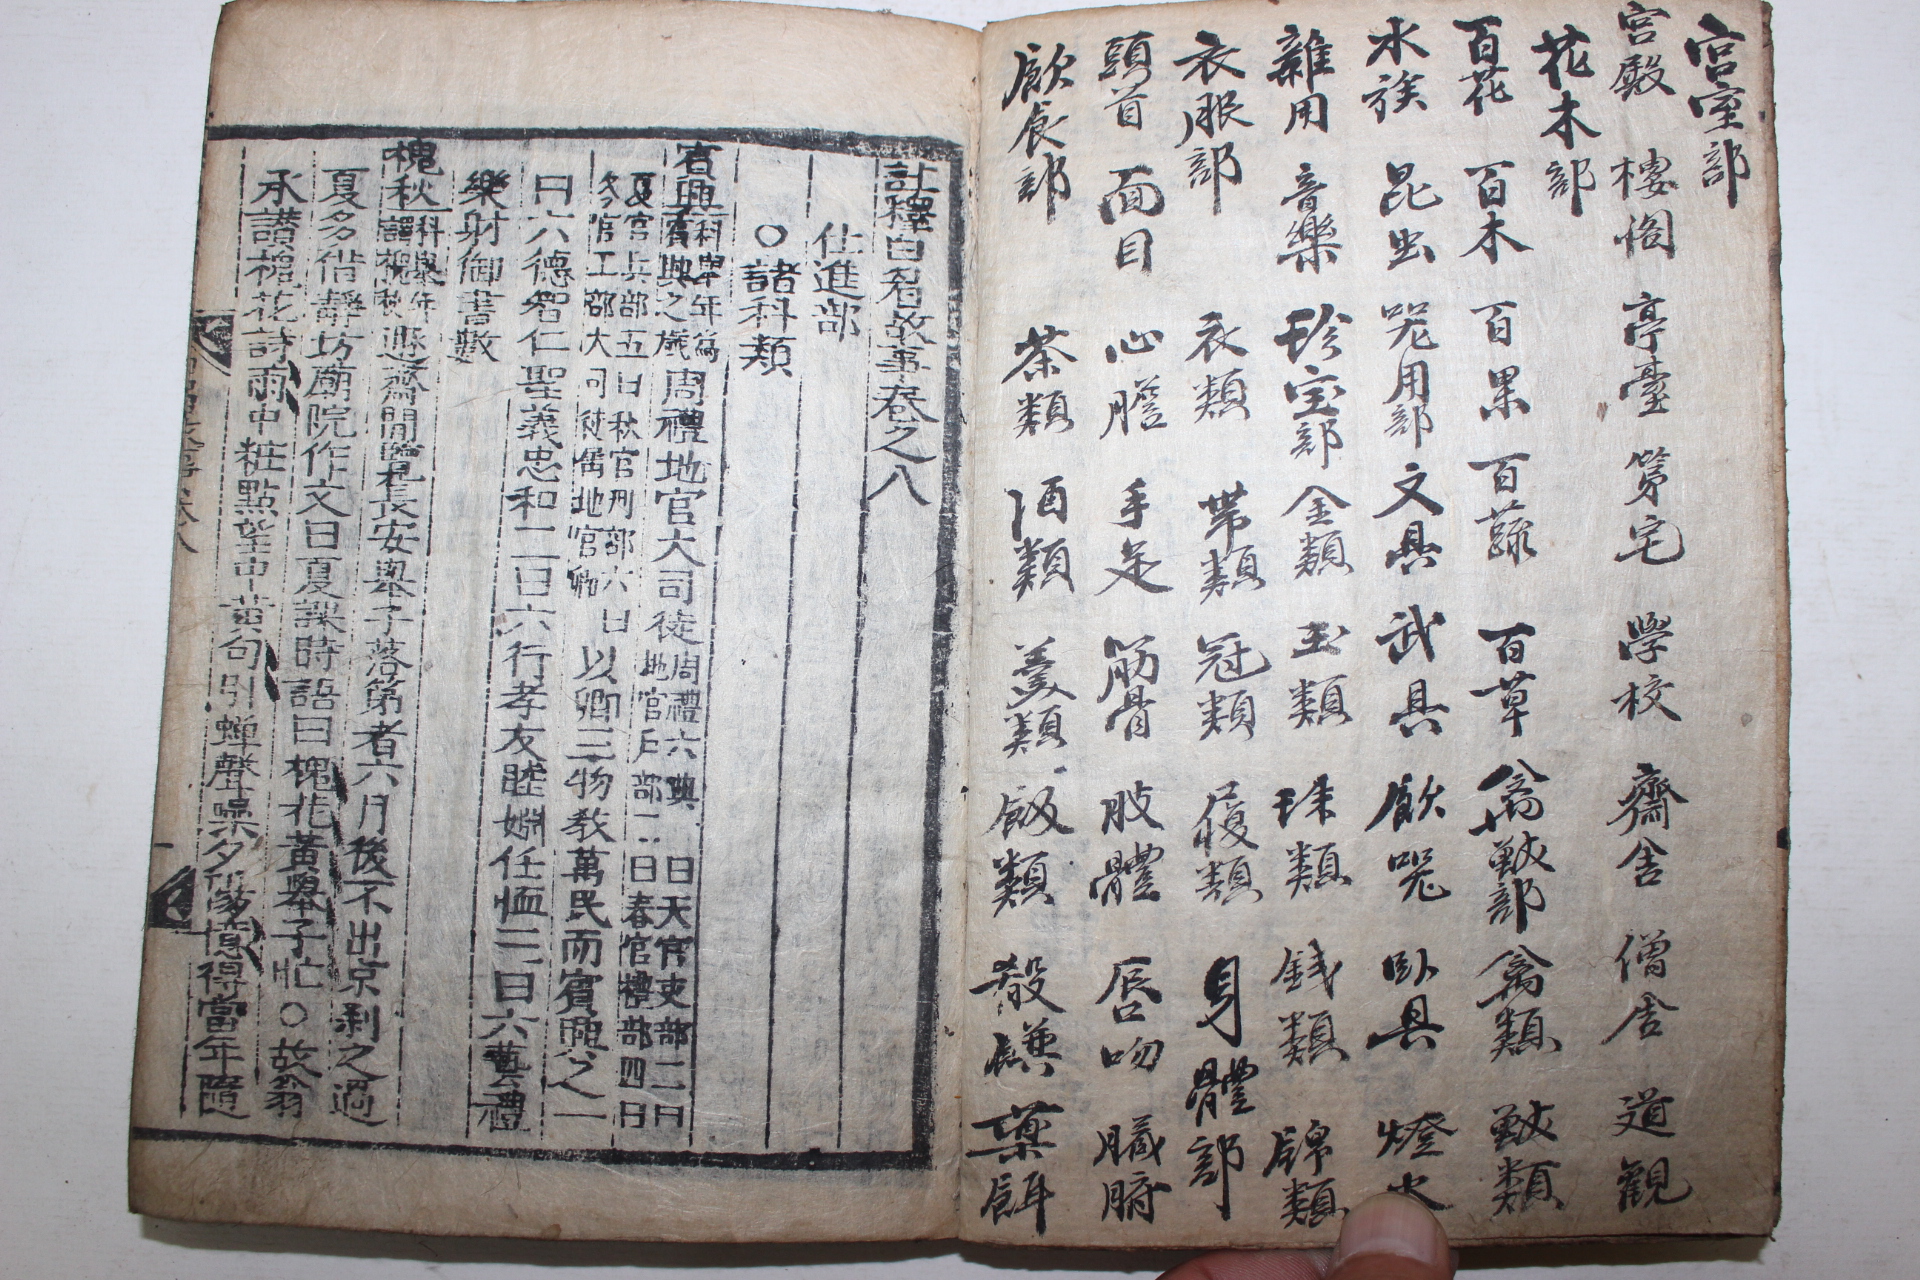 宮室部
宮殿 樓閣 亭臺 第宅 学校 齋舎 僧舎 道觀
花木部
百花 百木 百果 百蔬 百草 禽獸部 禽類 獸類
水族 昆虫 器用部 文具 武具 飮器 臥具 燈火
雜用 音樂 珍宝部 金類 玉類 珠類 錢類 錦類
衣服部 衣類 帶類 冠類 履類 身體部
頭首 面目 心膽 手足 筋骨 肢體 唇吻 臓腑
飮食部 茶類 酒類 羹類 飯類 藥餌
註釋白眉故事卷之八
仕進部
○諸科類
賓興 科擧年爲賓興之歲 周禮地官大司徒 周禮六典 一曰天官吏部二曰地官戶部三曰春官禮部四曰
夏官兵部五曰秋官刑部六曰冬官工部大司徒屬地官卿 以鄕三物敎萬民而賓興之一
曰六德智仁聖義忠和二曰六行孝友睦婣任恤三曰六藝禮
樂射御書數
槐秋 科擧年譯槐秋 遯齋閒覽長安擧子落第者六月後不出京剩之過
夏多借靜坊廟院作文曰夏課時語曰槐花黃擧子忙○故翁
承讃槐花詩雨中粧點望中黃句引蟬聲噪夕陽憶得當年隨